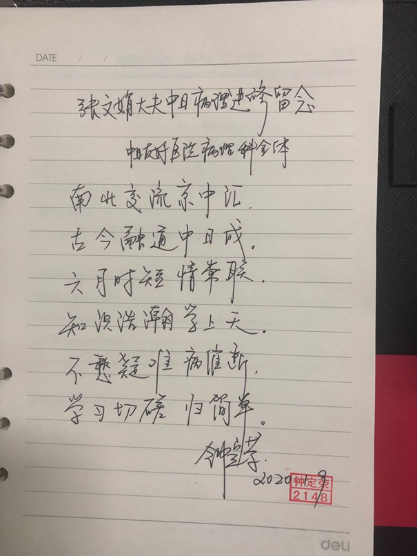 DATE / /
张文娟大夫中日病理进修留念
中日友好医院病理科全体
南北交流京中汇.
古今融通中日成.
六月时短情常联.
知识浩瀚学上天.
不愁疑难病难断.
学习切磋归简单.
钟定荣.
2020
钟定荣
2148
deli